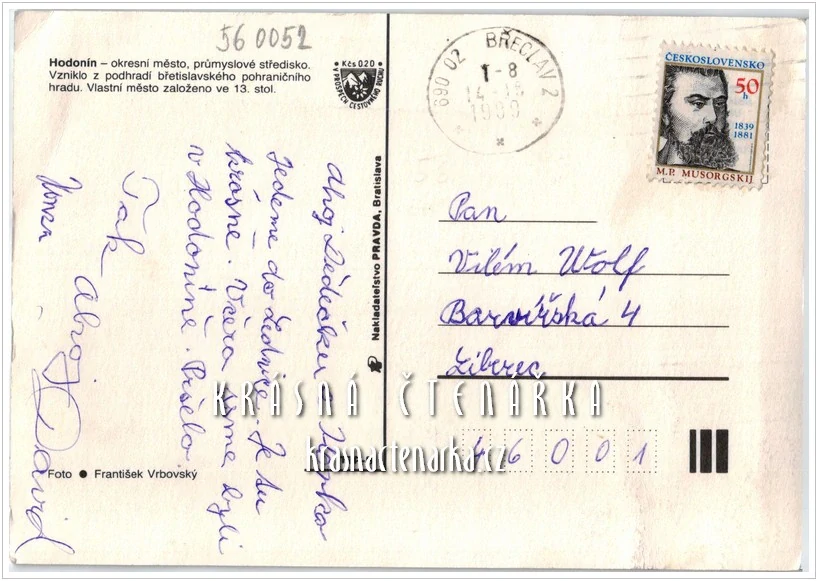 56 0052
Hodonín – okresní město, průmyslové středisko.
Vzniklo z podhradí břetislavského pohraničního
hradu. Vlastní město založeno ve 13. stol.
Kčs 020
V PROSPĚCH CESTOVNÍHO RUCHU
Ahoj Dědečku a
Jedeme do Lednice. Je tu
krásně. Včera sme byli
v Hodoníně. Pršelo.
Tak Ahoj
David
Honza
Foto ● František Vrbovský
Nakladatelství PRAVDA, Bratislava
690 02 BŘECLAV 2
1989
ČESKOSLOVENSKO
50
h
1839
1881
M.P. MUSORGSKIJ
Pan
Vilém Wolf
Barvířská 4
Liberec
46001
KRÁSNÁ ČTENÁŘKA
krasnactenarka.cz